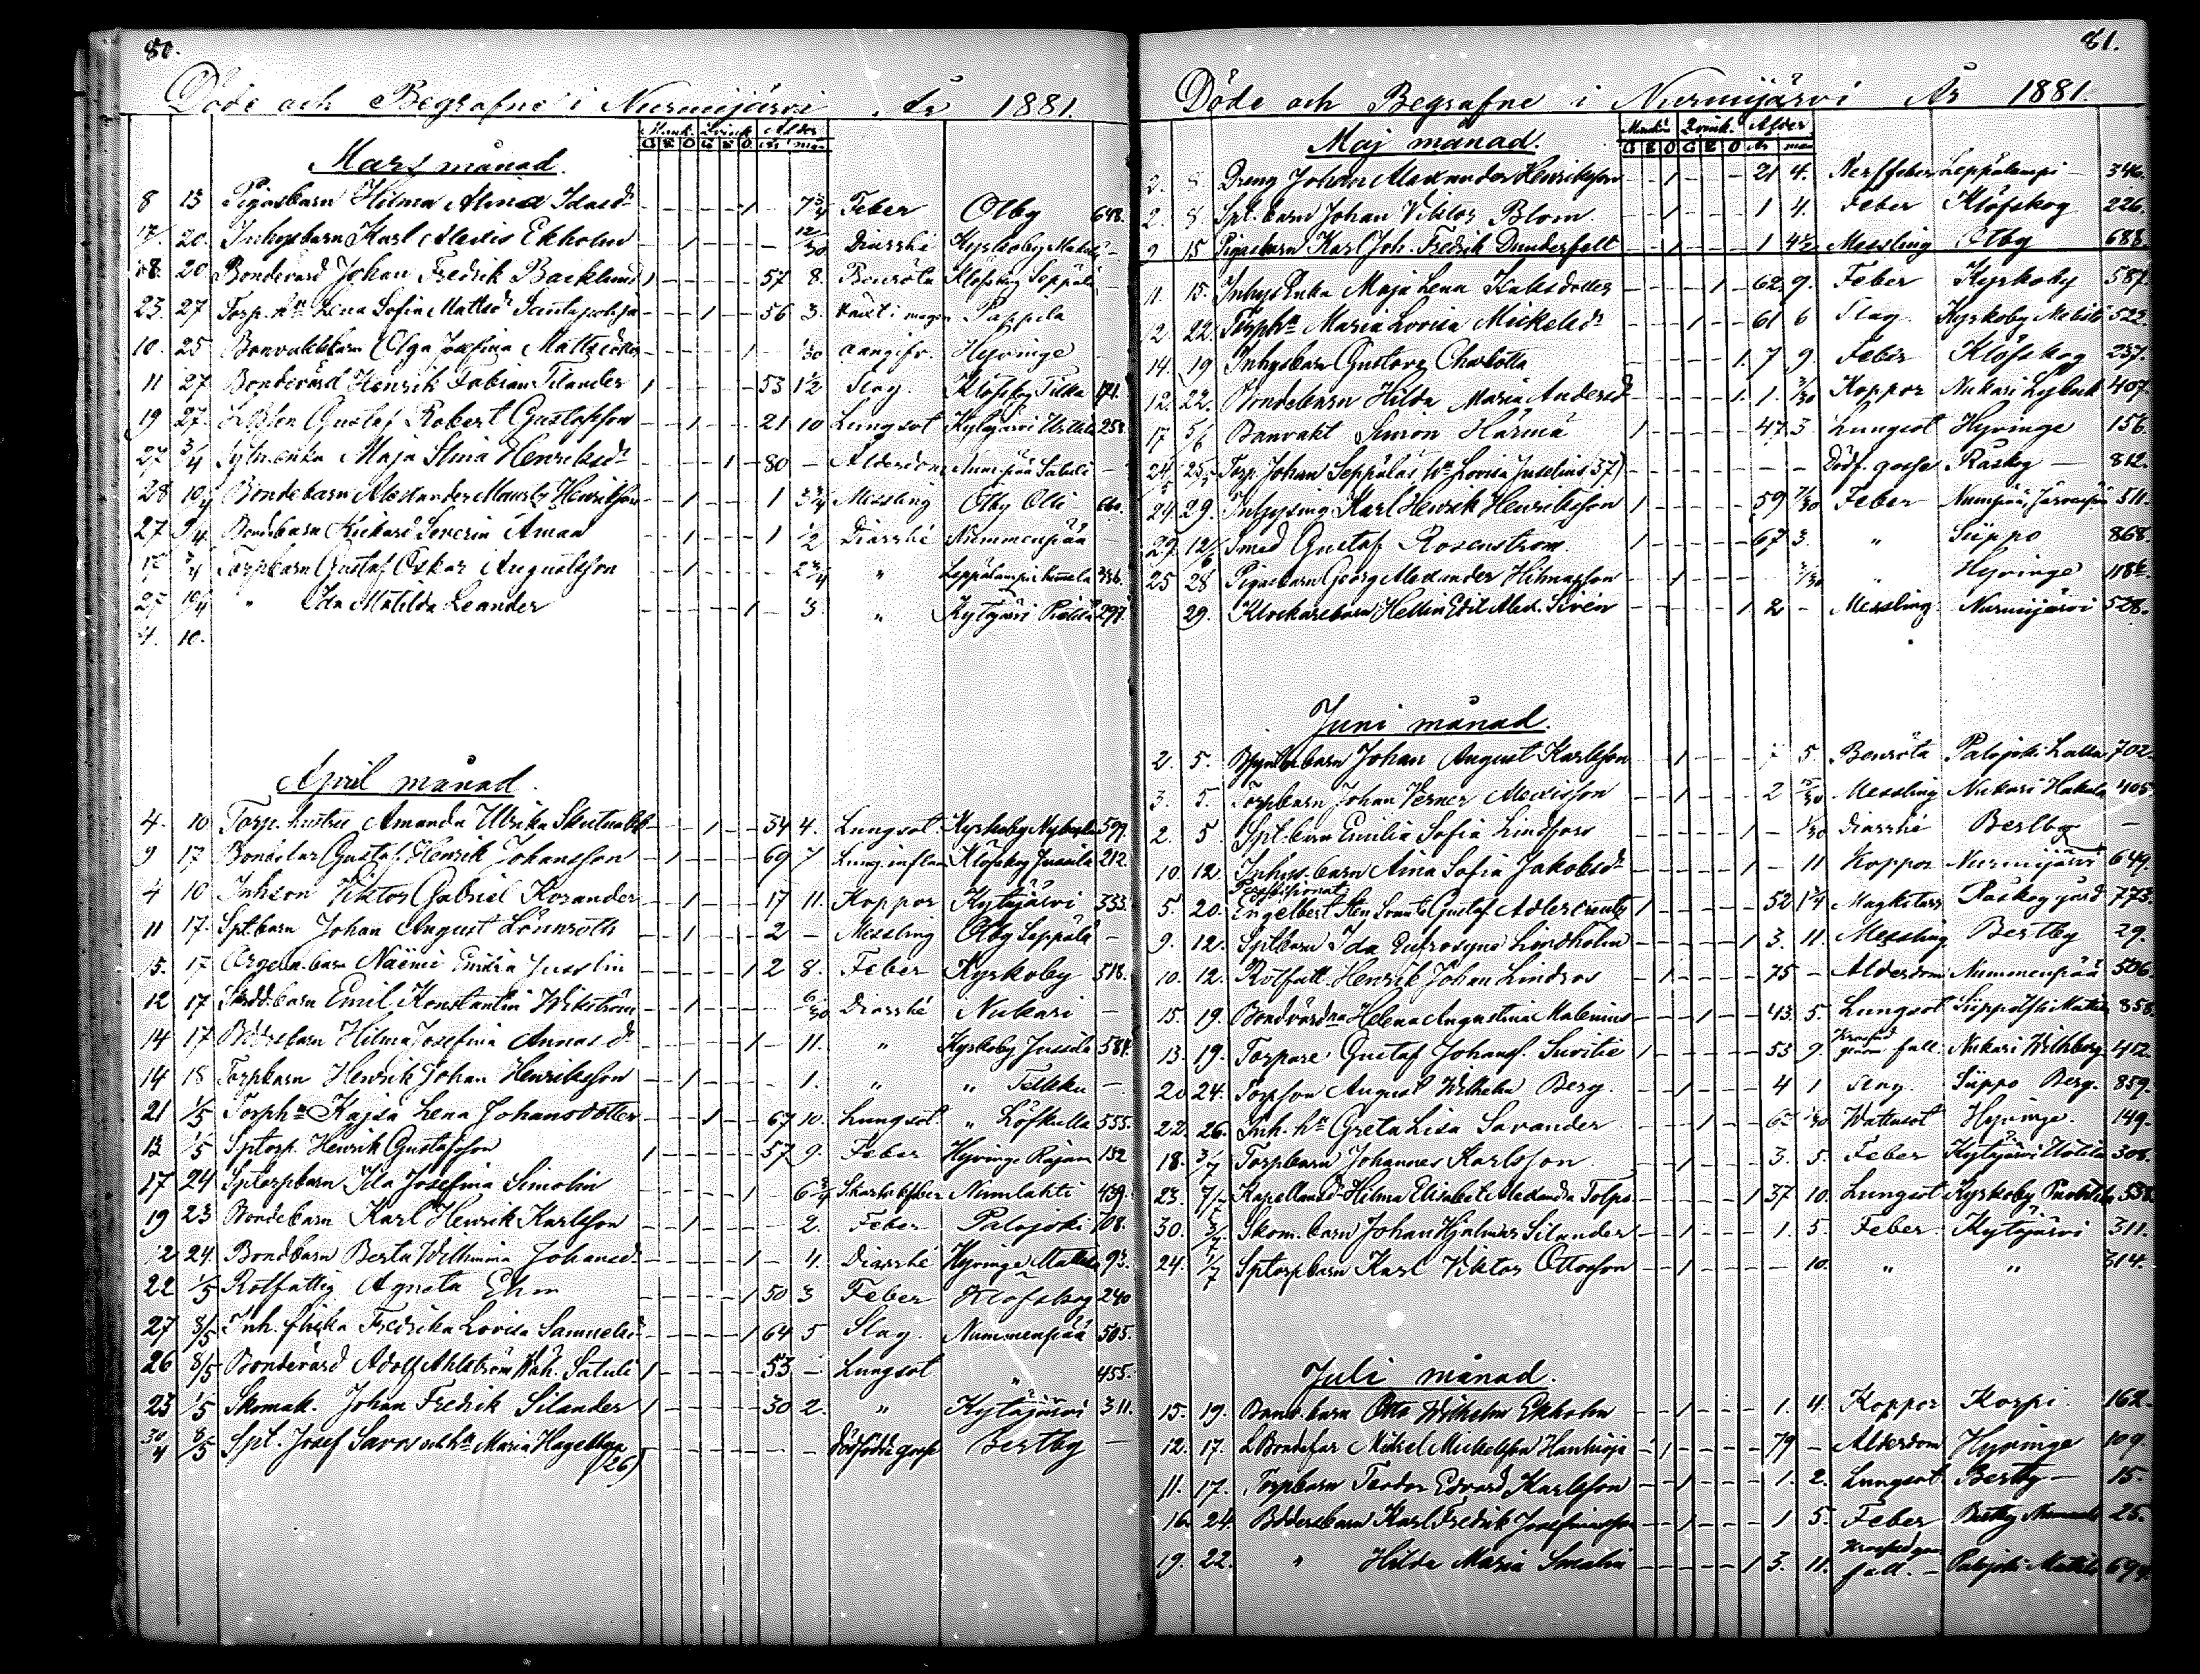 80.
Döde och Begrafne i Nurmijärvi År 1881.
Mank. Qvink. Ålder
G E O G E O år mån
Mars månad.
8 13 Pigasbarn Hilma Alina Idasdr - - - - - 1 - 7 3/4 Feber Olby 648.
17. 20. Inhysbarn Karl Alexis Ekholm - - 1 - - - - 12/30 Diarrhé Kyrkoby -
18. 20 Bondevärd Johan Fredrik Backlund 1 - - - - - 57 8. Benröta Klöfskog Seppälä -
23. 27 Torp. hu Lena Sofia Mattsdr - - - 1 - - 56 3. Pappila
10. 25 Banvaktsbarn Olga Josefina Mattsdotter - - - - - 1 - 1/30 oangifv. Hyvinge -
11 27 Bondevärd Henrik Fabian Tilander 1 - - - - - 53 1 1/2 Slag. Klöfskog Tilka 171.
19 27. Gustaf Robert Gustafsson - - 1 - - - 21 10 Lungsot Kytäjärvi 253.
27 3/4 Sytn.enka Maja Stina Henriksdr - - - - 1 - 80 - Ålderdom Numpää Satuli -
28 10/4 Bondebarn Alexander Maurtz Henriksson - - 1 - - - 1 3 3/4 Messling Olby Olli 660.
27 9/4 Bondebarn Rickard Severin Åman - - 1 - - - 1 1/2 Diarrhé Nummenpää -
15 3/4 Torpbarn Gustaf Oskar Augustsson - - 1 - - - - 2 3/4 " Leppälampi 336.
25 10/4 " Ida Matilda Leander - - - - - 1 - 3. " Kytäjärvi 297.
4. 10.
April månad.
4. 10 Torp. hustru Amanda Ulrika - - - 1 - - 34 4. Lungsot. Kyrkoby 597.
9 17. Bondefar Gustaf Henrik Johansson - 1 - - - - 69 7 Lunginflam Klöfskog Jussila 212.
4 10 Inhson Viktor Gabriel Korander - - 1 - - - 17 11. Koppor Kytäjärvi 333.
11 17. Spt.barn Johan August Lönnroth - - 1 - - - 2 - Messling Olby Seppälä -
15. 17 Naëmi Emilia Juselin - - - - - 1 2 8. Feber Kyrkoby 518.
12 17 Emil Konstantin Wikström - - 1 - - - - 6/30 Diarrhé Nukari -
14 17 Hilma Josefina Annasdr - - - - - 1 - 11. " Kyrkoby Jussila 584.
14 18 Torpbarn Henrik Johan Henriksson - - 1 - - - - 1. " " -
21 1/5 Torphu Kajsa Lena Johansdotter - - - 1 - - 67 10. Lungsot. " Löfkulla 555.
13 1/5 Sptorp. Henrik Gustafsson 1 - - - - - 57 9. Feber Hyvinge 132
17 24 Sptorpbarn Ida Josefina Simolin - - - - - 1 - 6 3/4 Skarlakfeber Numlahti 439.
19 23 Bondebarn Karl Henrik Karlsson - - 1 - - - - 2. Feber Palojoki 708.
12 24. Bondbarn Berta Wilhmina Johansd. - - - - - 1 - 4. Diarrhé Hyvinge 93.
22 1/5 Rotfattig Agneta Ehn - - - - - 1 50 3 Feber Klöfskog 240
27 8/5 Inh. flicka Fredrika Lovisa Samuelsdr - - - - - 1 64 5 Slag. Nummenpää 505.
26 8/5 Bondevärd Adolf Ahlström Satuli 1 - - - - - 53 - Lungsot " 455.
23 1/5 Skomak. Johan Fredrik Silander 1 - - - - - 30 2. " Kytäjärvi 311.
30/4 8/5 Spt. Josef och hu Maria Hagelberg - - - - - - - - Dödfödde gosse Bertby -
(26)
81.
Döde och Begrafne i Nurmijärvi År 1881.
Mank. Qvink. Ålder
G E O G E O år mån
Maj månad.
2. 8 Dreng Johan Alexander Henriksson - - 1 - - - 21 4. Nerffeber Leppälampi - 346.
2. 8 Spt. barn Johan Viktor Blom - - 1 - - - 1 4. Feber Klöfskog 226.
9 15 Pigasbarn Karl Joh. Fredrik Dunderfelt - - 1 - - - 1 4 1/2 Messling Olby 688.
11. 15. Inhys Enka Maja Lena Isaksdotter - - - - 1 - 62 9. Feber Kyrkoby 587.
12. 22. Torphu Maria Lovisa Mickelsdr - - - 1 - - 61 6 Slag. Kyrkoby 522.
14. 19 Inhysbarn Gustava Charlotta - - - - - 1. 7 9 Feber Klöfskog 237.
12. 22. Bondebarn Hilda Maria Andersd - - - - - 1. 1. 3/30 Koppor Nukari 407.
17 5/6 Banvakt Simon Härmä 1 - - - - - 47 3. Lungsot Hyvinge 156.
24/5 25/5 Torp. Johan Seppäläs hu Lovisa Juselius 37) - - Dödf. gosse Raskog - 812.
24. 29. Inhysing Karl Henrik Henriksson 1 - - - - - 59 7/30 Feber Numpää, 511.
29. 12/6 Smed Gustaf Rosenström. 1 - - - - - 67 3. " Siippo 868.
25 28 Pigasbarn Georg Alexander Hilmasson - - 1 - - - 3/30 " Hyvinge
29. Klockarebarn Hellin Edit Alex. Sirén - - - - - 1 2 - Messling Nurmijärvi 528.
Juni månad.
2. 5. Johan August Karlsson - - 1 - - - 5. Benröta Palojoki 702.
3. 5. Torpbarn Johan Verner Alexisson - - 1 - - - 2 15/30 Messling Nukari Hakala 405
2. 5 Spt. barn Emilia Sofia Lindfors - - - - - 1 - 1/30 Diarrhé Bertby -
10. 12. Inhys. barn Aina Sofia Jakobsdr - - - - - 1 - 11 Koppor Nurmijärvi 649.
Possessionat.
5. 20. Engelbert Sten Gustaf Adlercreutz 1 - - - - - 52 1 3/4 Raskog gård 773.
9. 12. Sptbarn Ida Eufrosyna Lindholm - - - - - 1 3. 11. Messling Bertby 29.
10. 12. Rotfatt. Henrik Johan Lindros - 1 - - - - 75 - Ålderdom Nummenpää 506.
15. 19. Bondvärdna Helena Augustina Malenius - - - 1 - - 43 5. Lungsot Siippo 858.
13. 19. Torpare Gustaf Johanss. 1 - - - - - 53 9. fall. Nukari 412
20 24. Torpson August Wilhelm Berg. - - 1 - - - 4 1 Slag. Siippo Berg. 859.
22. 26. Inh. hu Greta Lisa Savander - - - 1 - - Wattusot Hyvinge. 149.
18. 3/7 Torpbarn Johannes Karlsson - - 1 - - - 3. 5. Feber Kytäjärvi 308.
23. 7/7 Kapellansdr Hilma Elisabet Alexandra Tolpo - - - - - 1 37 10. Lungsot Kyrkoby
30. 3/7 Skom. barn Johan Hjalmar Silander - - 1 - - - 1. 5. Feber. Kytäjärvi 311.
24. 1/7 Sptorpbarn Karl Viktor Ottosson - - 1 - - - - 10. " " 314.
Juli månad.
15. 19. barn Otto Wilhelm Ekholm - - 1 - - - 1. 4. Koppor Korpi. 162.
12. 17. Bondefar Mikel Mickelsson - 1 - - - - 79 - Ålderdom Hyvinge 109.
11. 17. Torpbarn Teodor Edvard Karlsson - - 1 - - - 1. 2. Lungsot Bertby - 15.
16. 24. Karl Fredrik Josefinasson - - 1 - - - 1 5. Feber Bertby 25.
19. 22. " Hilda Maria Smalin - - - - - 1 3. 11. fall. - Palojoki